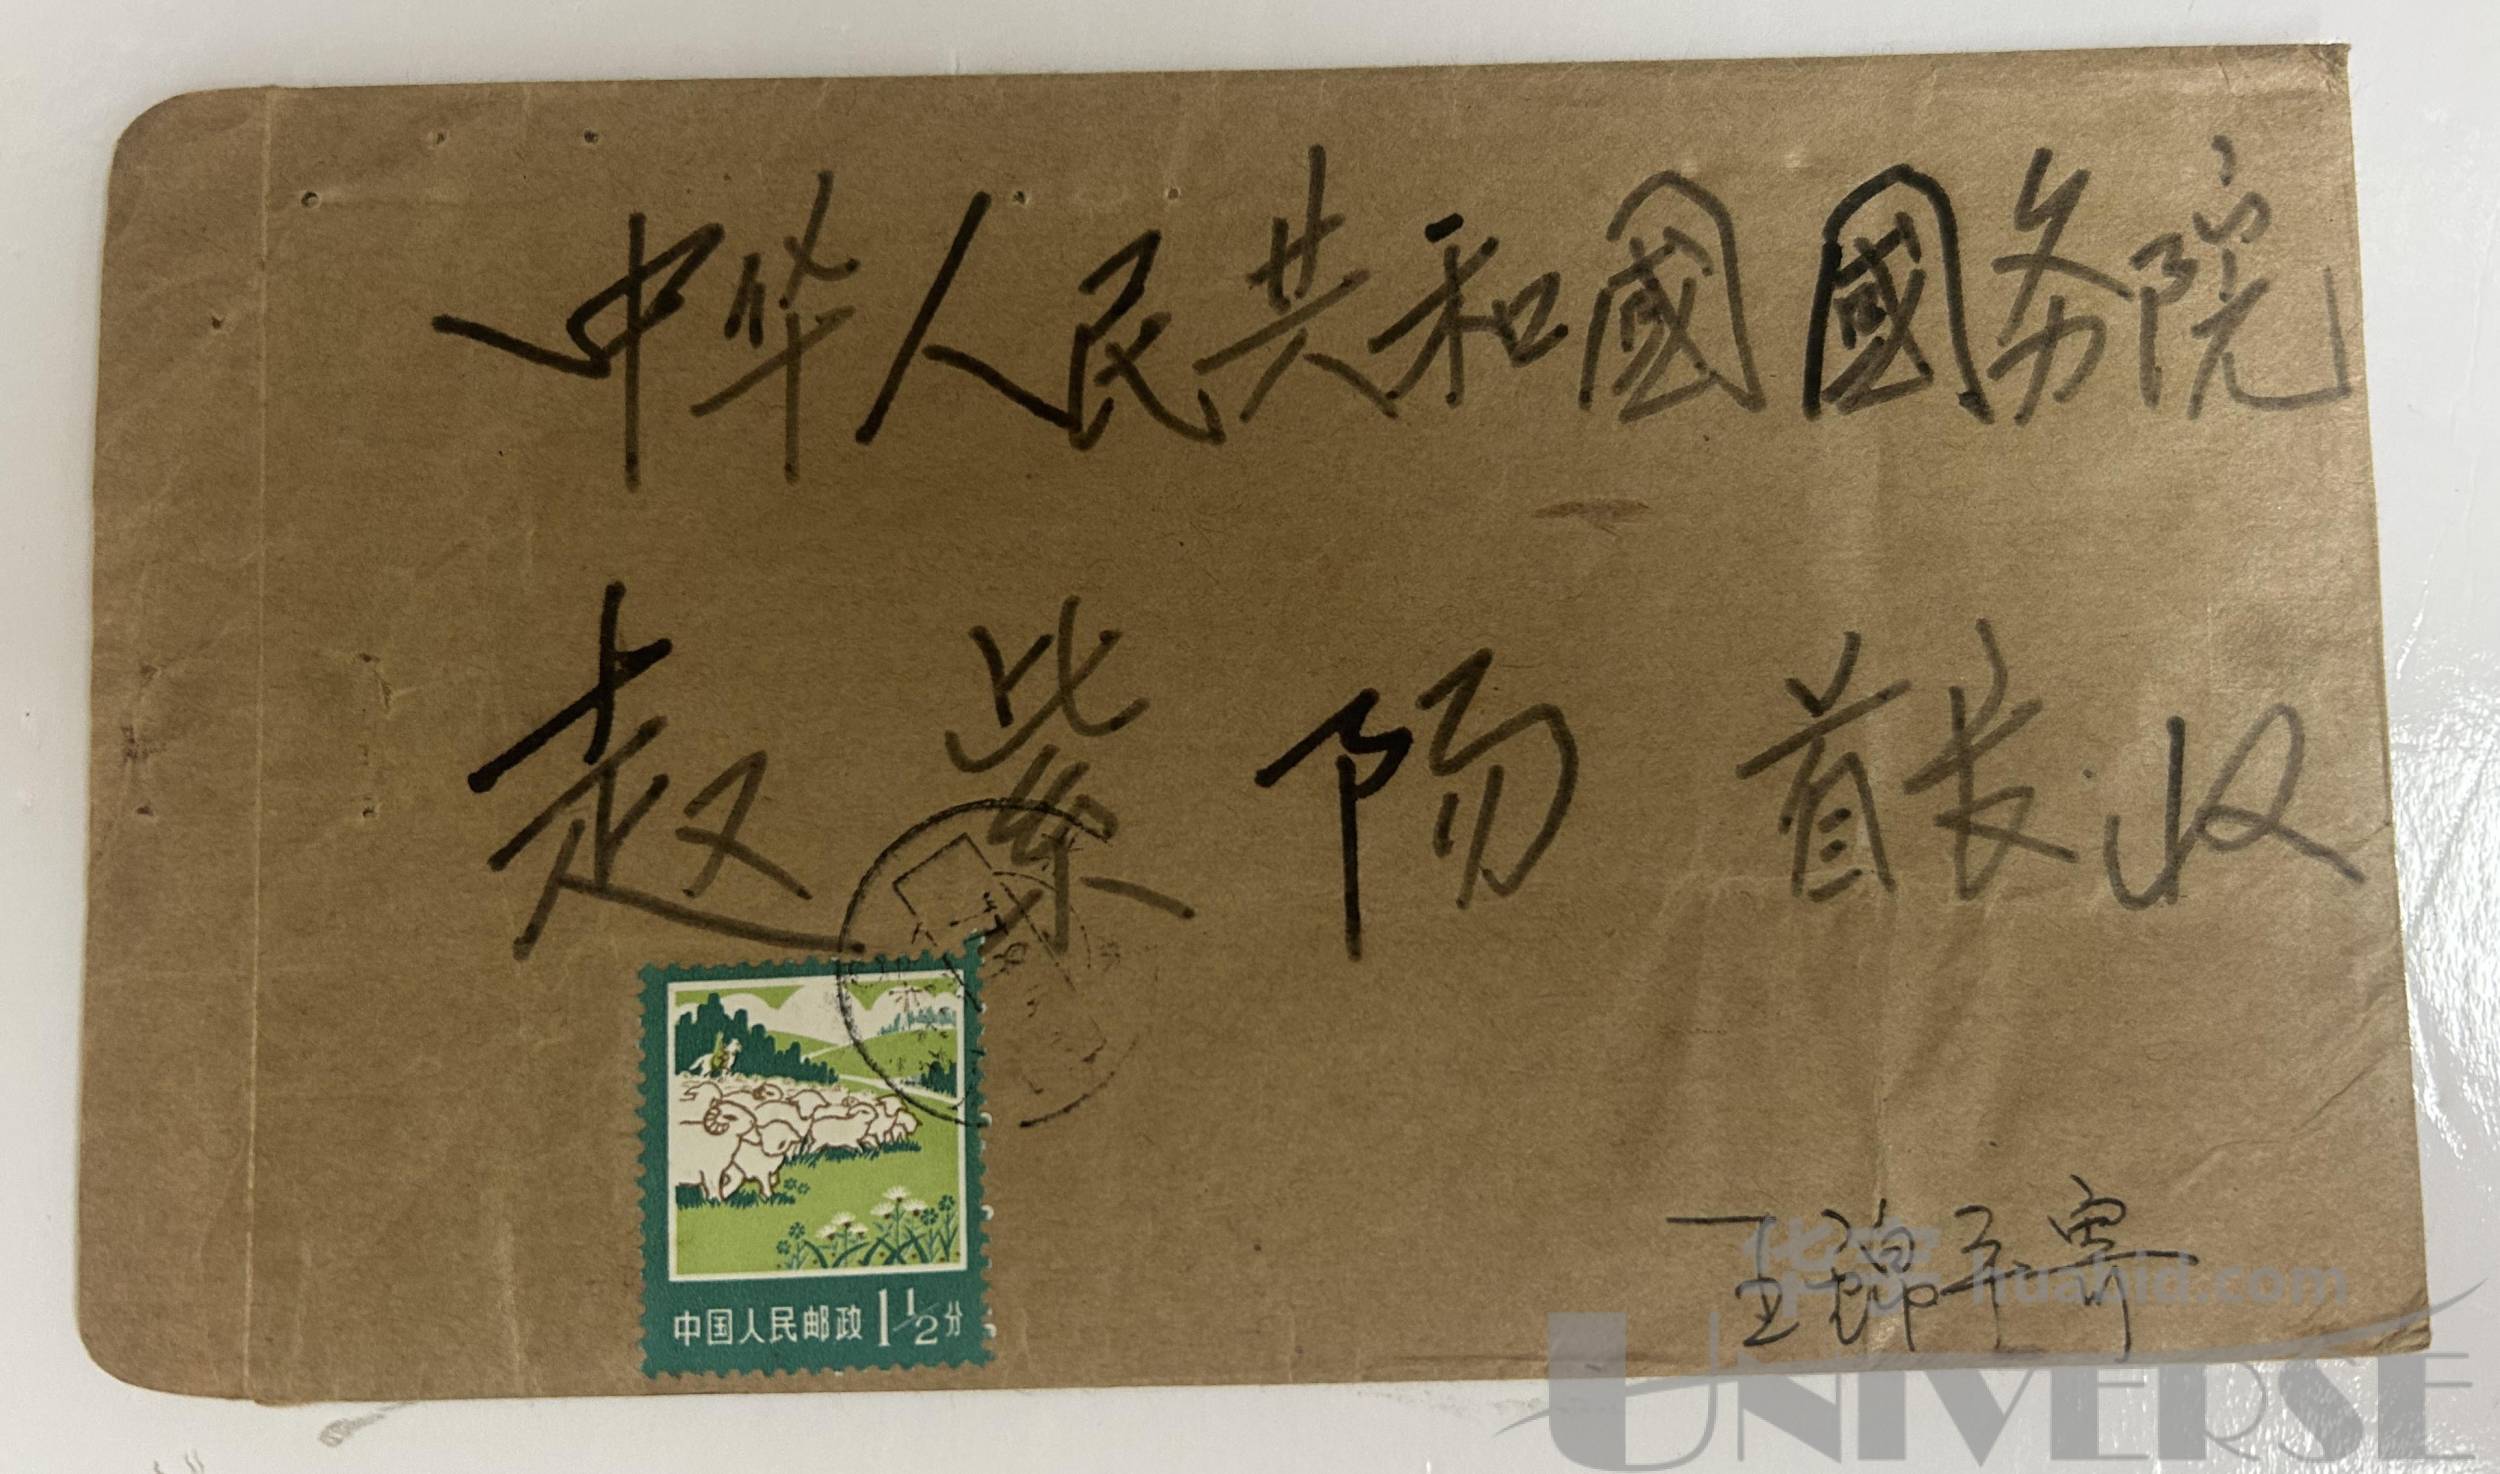 中华人民共和國國务院
赵紫阳 首长收
中国人民邮政 1 1/2 分
王锦玉寄
华宇 huabid.com
UNIVERSE